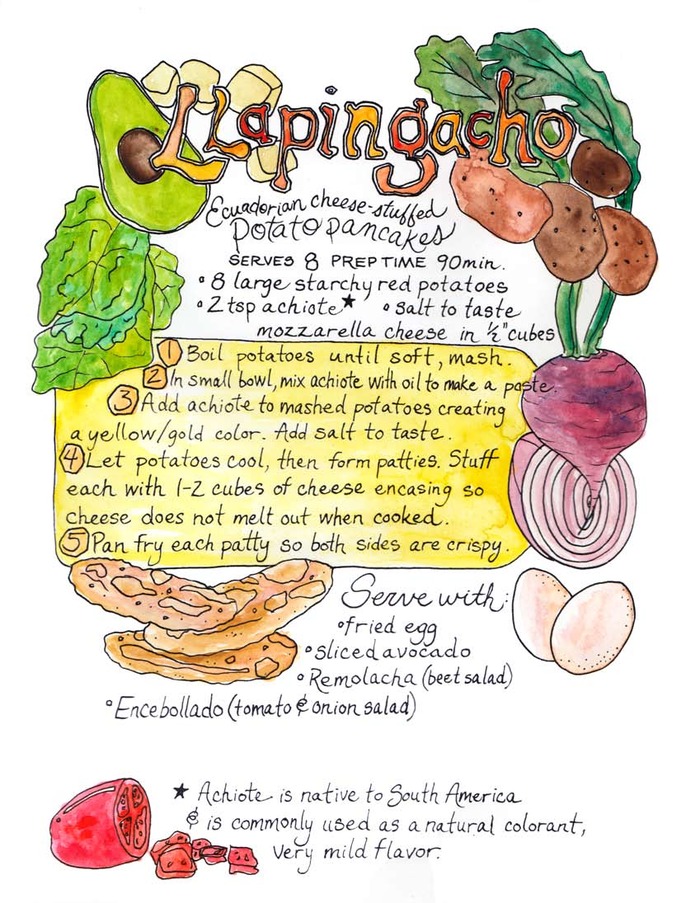 LLapingacho
Ecuadorian cheese-stuffed
Potato pancakes
SERVES 8 PREP TIME 90min.
• 8 large starchy red potatoes
• 2 tsp achiote★ • salt to taste
mozzarella cheese in ½" cubes
1 Boil potatoes until soft, mash.
2 In small bowl, mix achiote with oil to make a paste.
3 Add achiote to mashed potatoes creating
a yellow/gold color. Add salt to taste.
4 Let potatoes cool, then form patties. Stuff
each with 1-2 cubes of cheese encasing so
cheese does not melt out when cooked.
5 Pan fry each patty so both sides are crispy.
Serve with:
• fried egg
• sliced avocado
• Remolacha (beet salad)
• Encebollado (tomato & onion salad)
★ Achiote is native to South America
& is commonly used as a natural colorant,
very mild flavor.